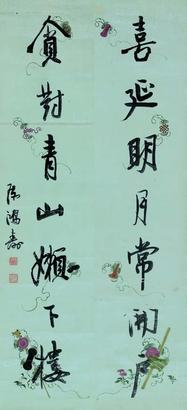 喜延明月常開戶
貪對青山嬾下樓
陈鴻壽